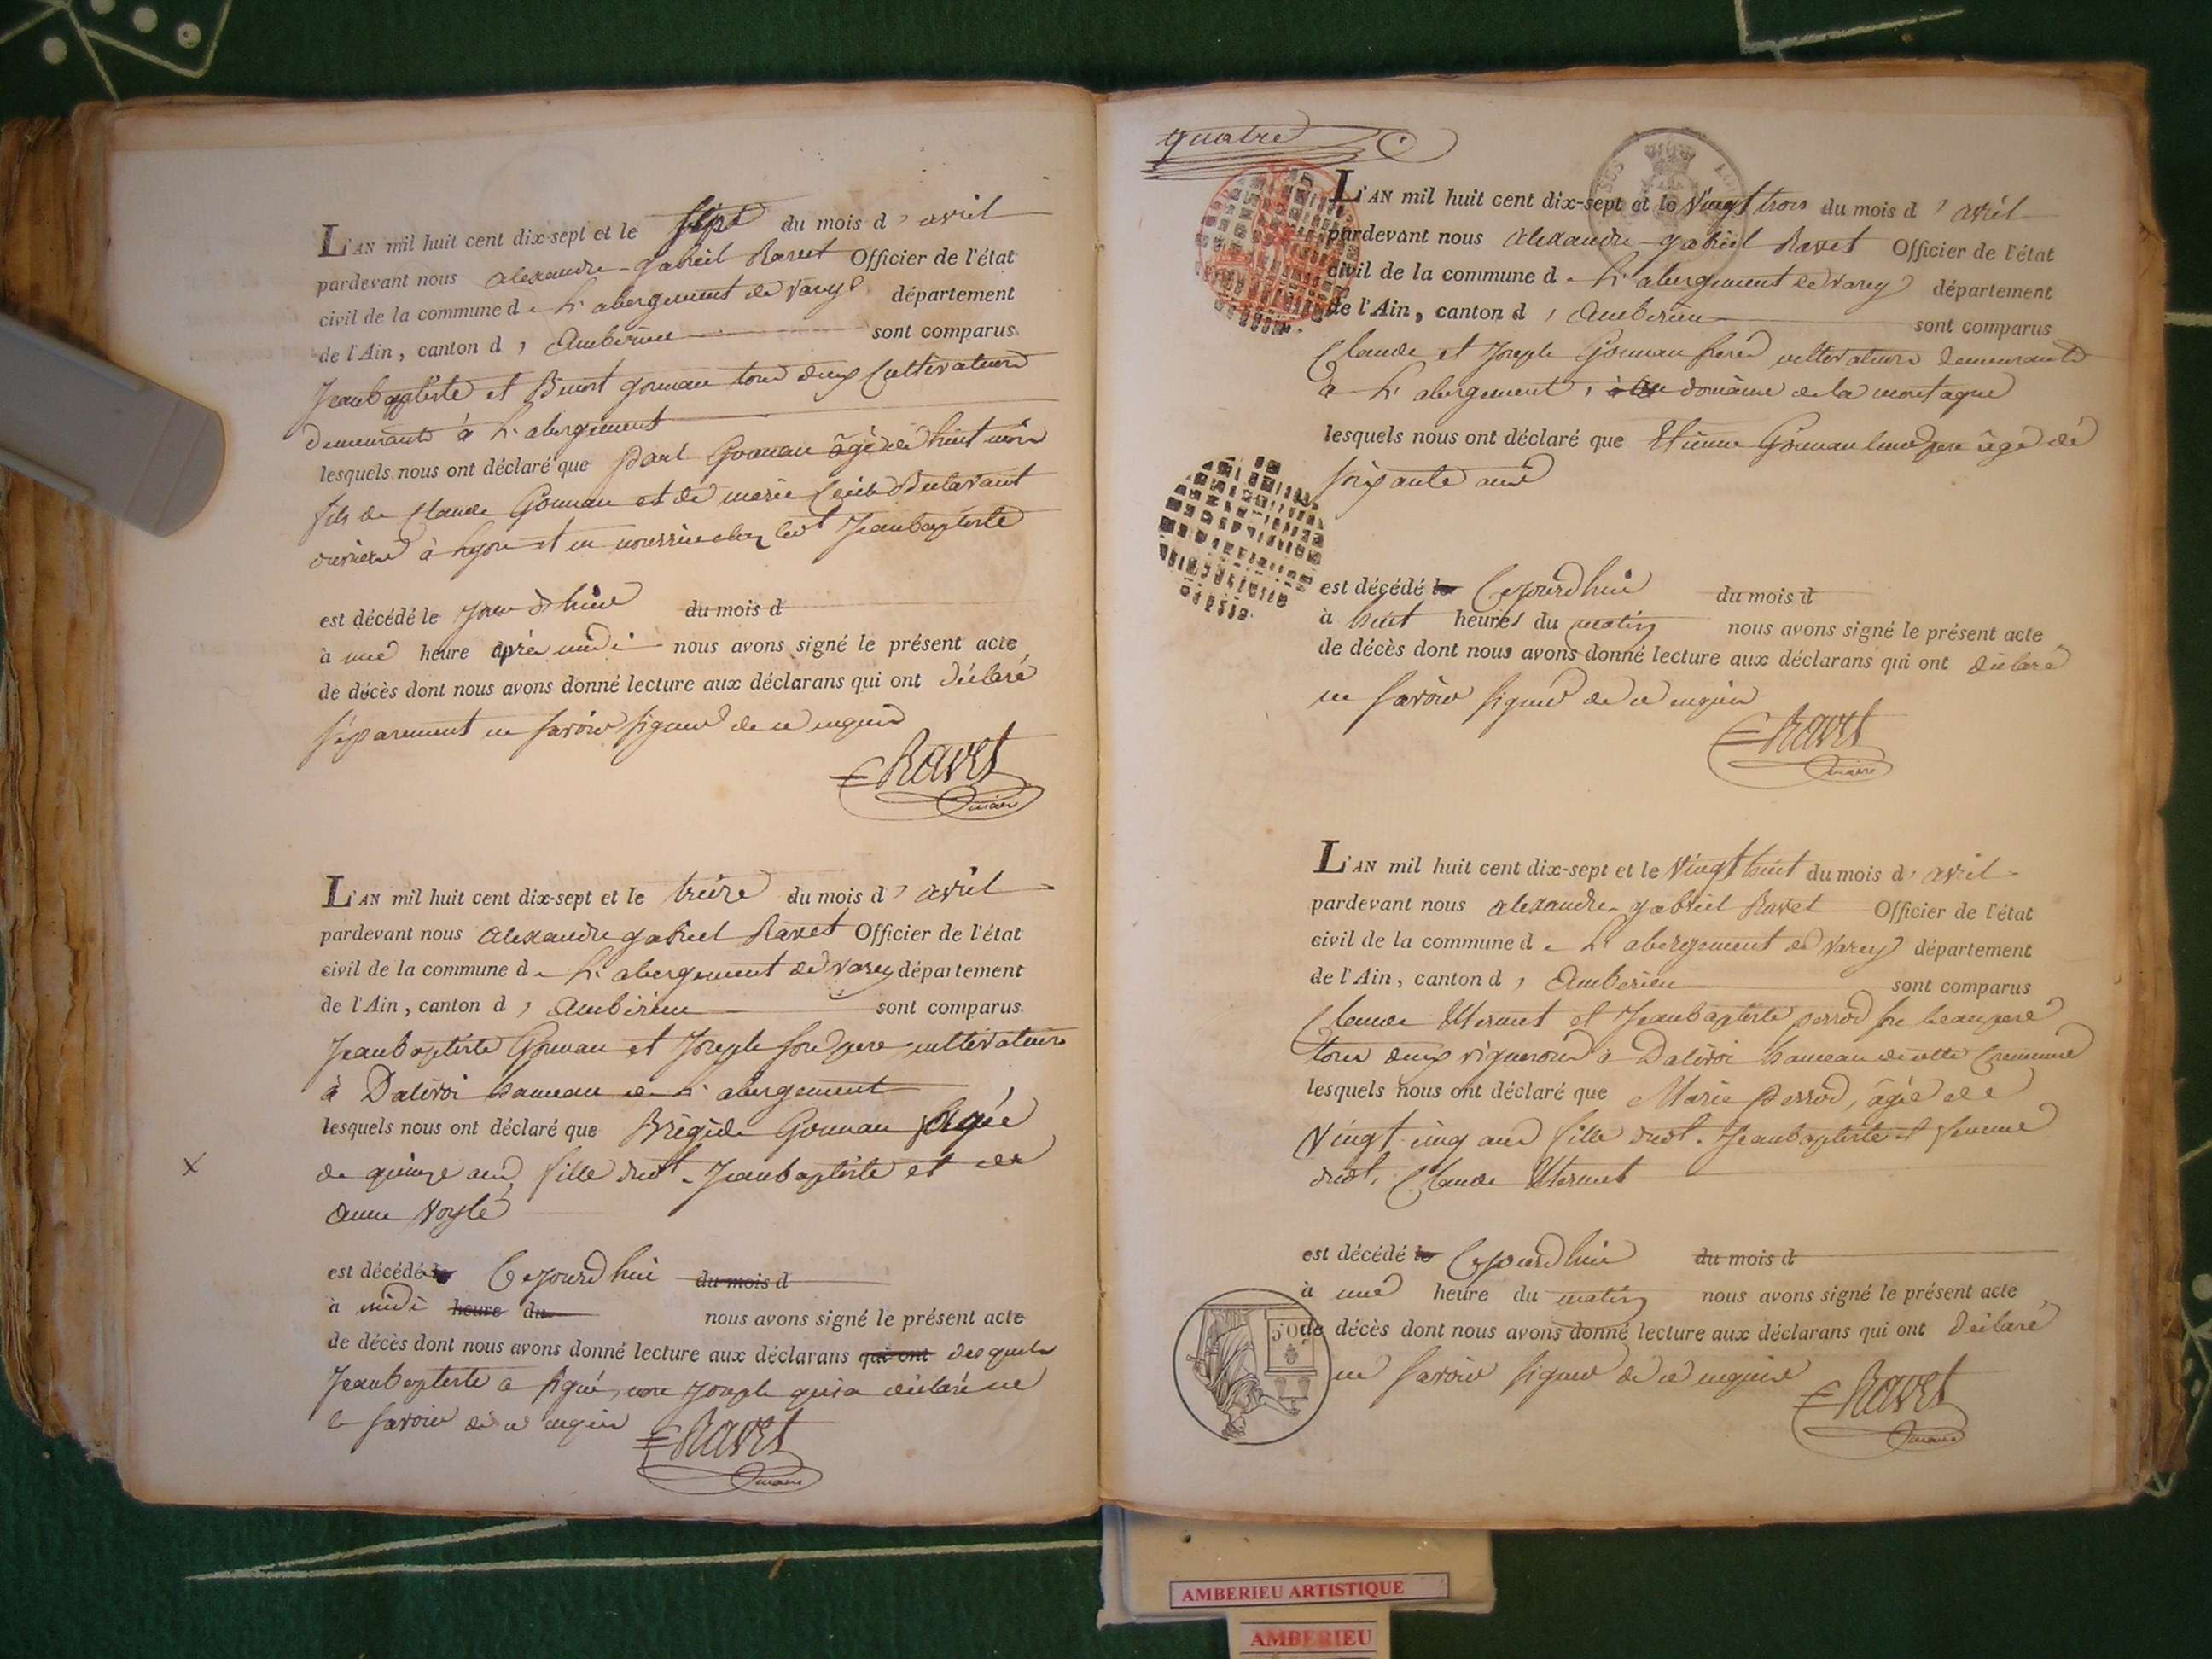 L'AN mil huit cent dix-sept et le sept du mois d'avril
pardevant nous alexandre-gabriel Ravet Officier de l'état
civil de la commune de L'abergement de varey département
de l'Ain, canton d'Amberieu sont comparus
Jeanbaptiste et Benoit gounan tous deux Cultivateurs
demeurants à L'abergement
lesquels nous ont déclaré que paul Gounan âgé de huit mois
fils de Claude Gounan et de marie
à Lyon et en chez ledt Jeanbaptiste
est décédé le jourd'hui du mois d
à une heure après midi nous avons signé le présent acte
de décès dont nous avons donné lecture aux déclarans qui ont déclaré
séparement ne savoir signer de ce enquis
Ravet
maire
L'AN mil huit cent dix-sept et le treize du mois d'avril
pardevant nous alexandre gabriel Ravet Officier de l'état
civil de la commune de L'abergement de varey département
de l'Ain, canton d'Amberieu sont comparus
Jeanbaptiste Gounan et Joseph son pere cultivateurs
à Dalivoi hameau de L'abergement
lesquels nous ont déclaré que Brigide Gounan âgée
de quinze ans fille dudt Jeanbaptiste et de
anne
est décédé le Cejourd'hui du mois d
à midi heure du nous avons signé le présent acte
de décès dont nous avons donné lecture aux déclarans qui ont desquels
Jeanbaptiste a signé, non Joseph qui a déclaré ne
le savoir de ce enquis
Ravet
maire
quatre
L'AN mil huit cent dix-sept et le vingt trois du mois d'avril
pardevant nous alexandre-gabriel Ravet Officier de l'état
civil de la commune de L'abergement de varey département
de l'Ain, canton d'Amberieu sont comparus
Claude et Joseph Gounan freres cultivateurs demeurants
à L'abergement, domaine de la montagne
lesquels nous ont déclaré que Etienne Gounan leur pere âgé de
soixante ans
est décédé le Cejourd'hui du mois d
à huit heures du matin nous avons signé le présent acte
de décès dont nous avons donné lecture aux déclarans qui ont déclaré
ne savoir signer de ce enquis
Ravet
maire
L'AN mil huit cent dix-sept et le vingt huit du mois d'avril
pardevant nous alexandre-gabriel Ravet Officier de l'état
civil de la commune de L'abergement de varey département
de l'Ain, canton d'Amberieu sont comparus
Claude et Jeanbaptiste perrod beaupere
tous deux vignerons à Dalivoi hameau de cette Commune
lesquels nous ont déclaré que Marie perrod, âgée de
vingt cinq ans fille dudt. Jeanbaptiste et femme
dudt. Claude
est décédé le Cejourd'hui du mois d
à une heure du matin nous avons signé le présent acte
de décès dont nous avons donné lecture aux déclarans qui ont déclaré
ne savoir signer de ce enquis
Ravet
maire
AMBERIEU ARTISTIQUE
AMBERIEU